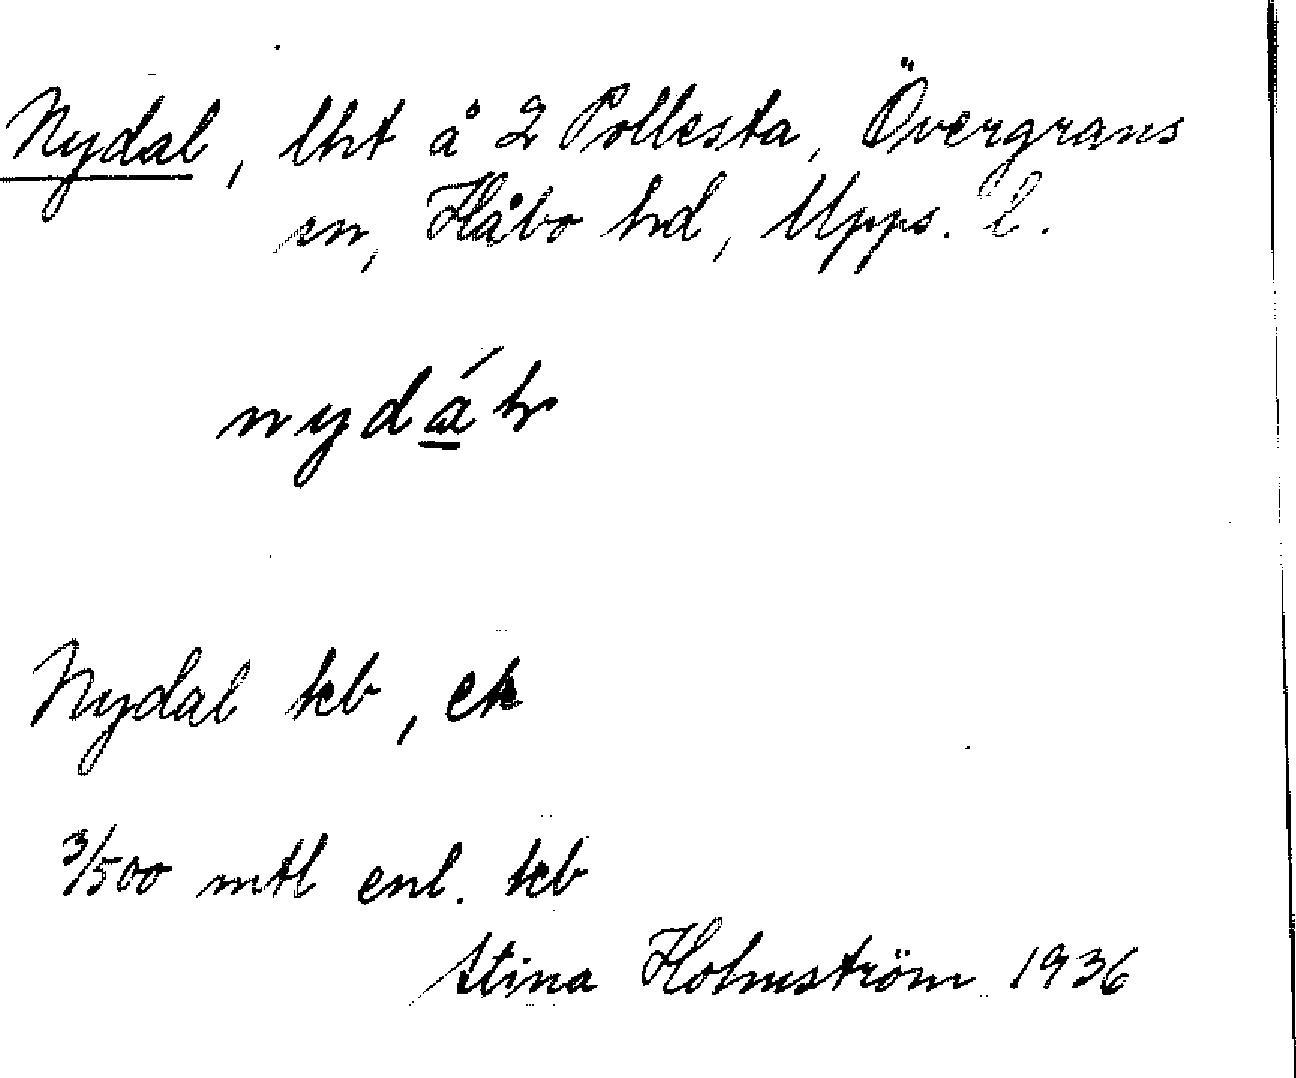 Nydal, lht å 2 Pollesta, Övergrans
sn, Håbo hd, Upps. l.
nydá
Nydal kb, ek
3/500 mtl enl. kb
Stina Holmström 1936